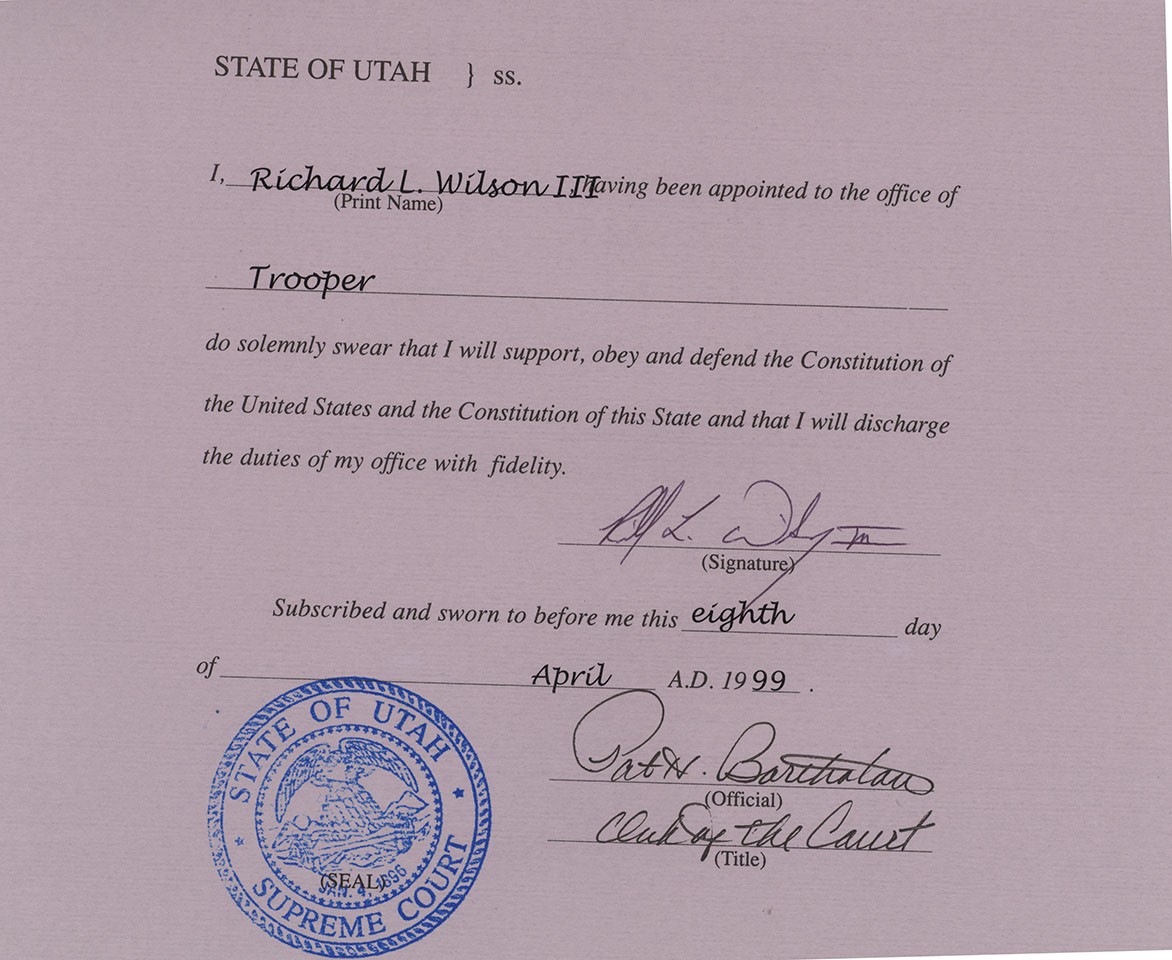 STATE OF UTAH } ss.
I, Richard L. Wilson III, having been appointed to the office of
(Print Name)
Trooper
do solemnly swear that I will support, obey and defend the Constitution of
the United States and the Constitution of this State and that I will discharge
the duties of my office with fidelity.
L.
(Signature)
Subscribed and sworn to before me this eighth day
of April A.D. 1999.
Pat H.
(Official)
Clerk of the Court
(Title)
STATE OF UTAH
(SEAL)
JAN. 4, 1896
SUPREME COURT